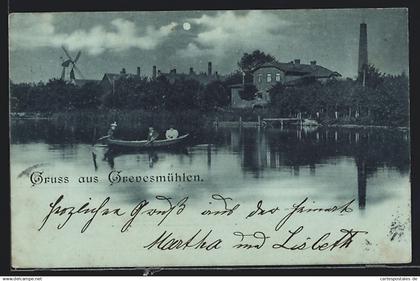 Gruss aus Grevesmühlen.
Herzlichen Gruß aus der Heimat
Martha und Lisbeth
© cartespostales.de